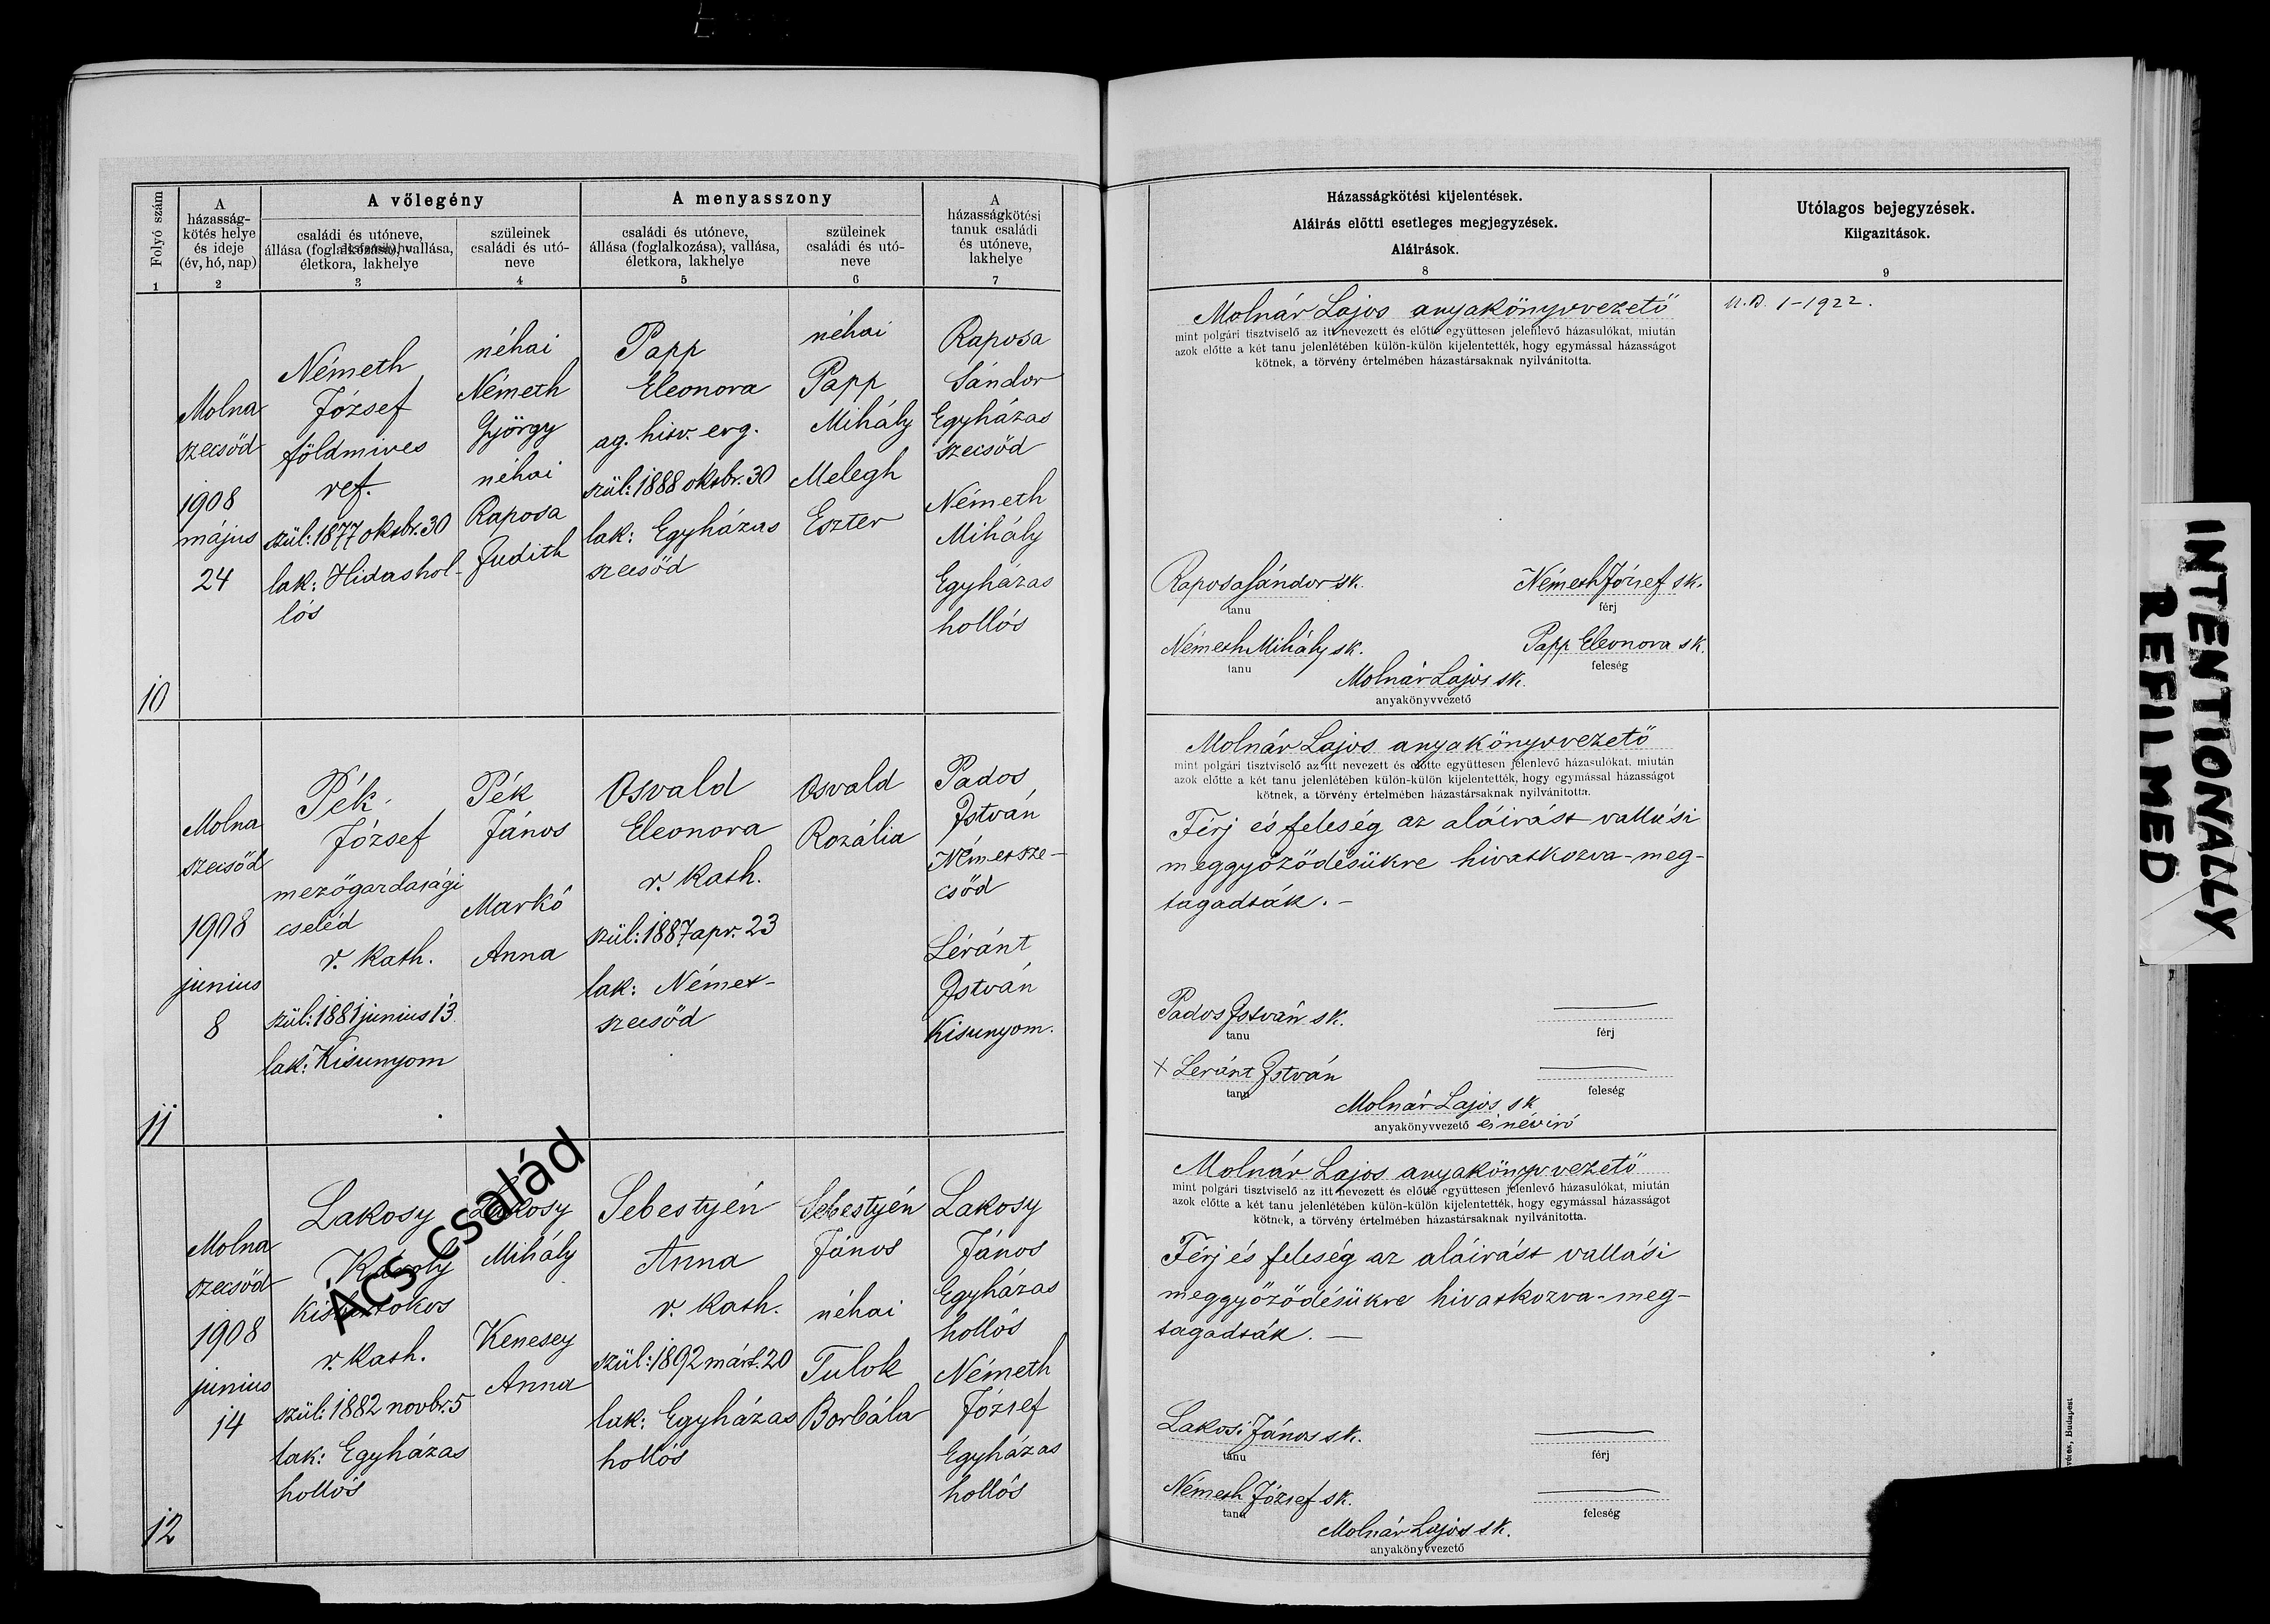 Folyó szám
1
A
házasság-
kötés helye
és ideje
(év, hó, nap)
2
A vőlegény
családi és utóneve,
állása (foglalkozása), vallása,
életkora, lakhelye
3
szüleinek
családi és utó-
neve
4
A menyasszony
családi és utóneve,
állása (foglalkozása), vallása,
életkora, lakhelye
5
szüleinek
családi és utó-
neve
6
A
házasságkötési
tanuk családi
és utóneve,
lakhelye
7
Házasságkötési kijelentések.
Aláirás előtti esetleges megjegyzések.
Aláirások.
8
Utólagos bejegyzések.
Kiigazitások.
9
10
Molna
szecsőd
1908
május
24
Németh
József
földmives
ref.
szül: 1877 oktbr. 30
lak: Hidashol-
lós
néhai
Németh
György
néhai
Raposa
Judith
Papp
Eleonora
ag. hitv. evg.
szül: 1888 oktbr. 30
lak: Egyházas
szecsőd
néhai
Papp
Mihály
Melegh
Eszter
Raposa
Sándor
Egyházas
szecsőd
Németh
Mihály
Egyházas
hollós
Molnár Lajos anyakönyvvezető
mint polgári tisztviselő az itt nevezett és előtte együttesen jelenlevő házasulókat, miután
azok előtte a két tanu jelenlétében külön-külön kijelentették, hogy egymással házasságot
kötnek, a törvény értelmében házastársaknak nyilvánitotta.
Raposa Sándor sk.
tanu
Németh József sk.
férj
Németh Mihály sk.
tanu
Papp Eleonora sk.
feleség
Molnár Lajos sk.
anyakönyvvezető
1-1922.
11
Molna
szecsőd
1908
junius
8
Pék
József
mezőgazdasági
cseléd
r. kath.
szül: 1881 junius 13
lak: Kisunyom
Pék
János
Markó
Anna
Osvald
Eleonora
r. kath.
szül: 1887 apr. 23
lak: Német-
szecsőd
Osvald
Rozália
Pados
István
Németsze-
csőd
Léránt
István
Kisunyom.
Molnár Lajos anyakönyvvezető
mint polgári tisztviselő az itt nevezett és előtte együttesen jelenlevő házasulókat, miután
azok előtte a két tanu jelenlétében külön-külön kijelentették, hogy egymással házasságot
kötnek, a törvény értelmében házastársaknak nyilvánitotta.
Férj és feleség az aláirást vallási
meggyőződésükre hivatkozva-meg-
tagadták. -
Pados István sk.
tanu
férj
+ Léránt István
tanu
feleség
Molnár Lajos sk
anyakönyvvezető és néviró
12
Molna
szecsőd
1908
junius
14
Lakosy
Károly
kisbirtokos
r. kath.
szül: 1882 novbr. 5
lak: Egyházas
hollós
Lakosy
Mihály
Kenesey
Anna
Ács család
Sebestyén
Anna
r. kath.
szül: 1892 márt. 20
lak: Egyházas
hollós
Sebestyén
János
néhai
Tulok
Borbála
Lakosy
János
Egyházas
hollós
Németh
József
Egyházas
hollós
Molnár Lajos anyakönyvvezető
mint polgári tisztviselő az itt nevezett és előtte együttesen jelenlevő házasulókat, miután
azok előtte a két tanu jelenlétében külön-külön kijelentették, hogy egymással házasságot
kötnek, a törvény értelmében házastársaknak nyilvánitotta.
Férj és feleség az aláirást vallási
meggyőződésükre hivatkozva-meg-
tagadták. -
Lakosi János sk.
tanu
férj
Németh József sk.
tanu
feleség
Molnár Lajos sk.
anyakönyvvezető
Budapest
INTENTIONALLY
REFILMED